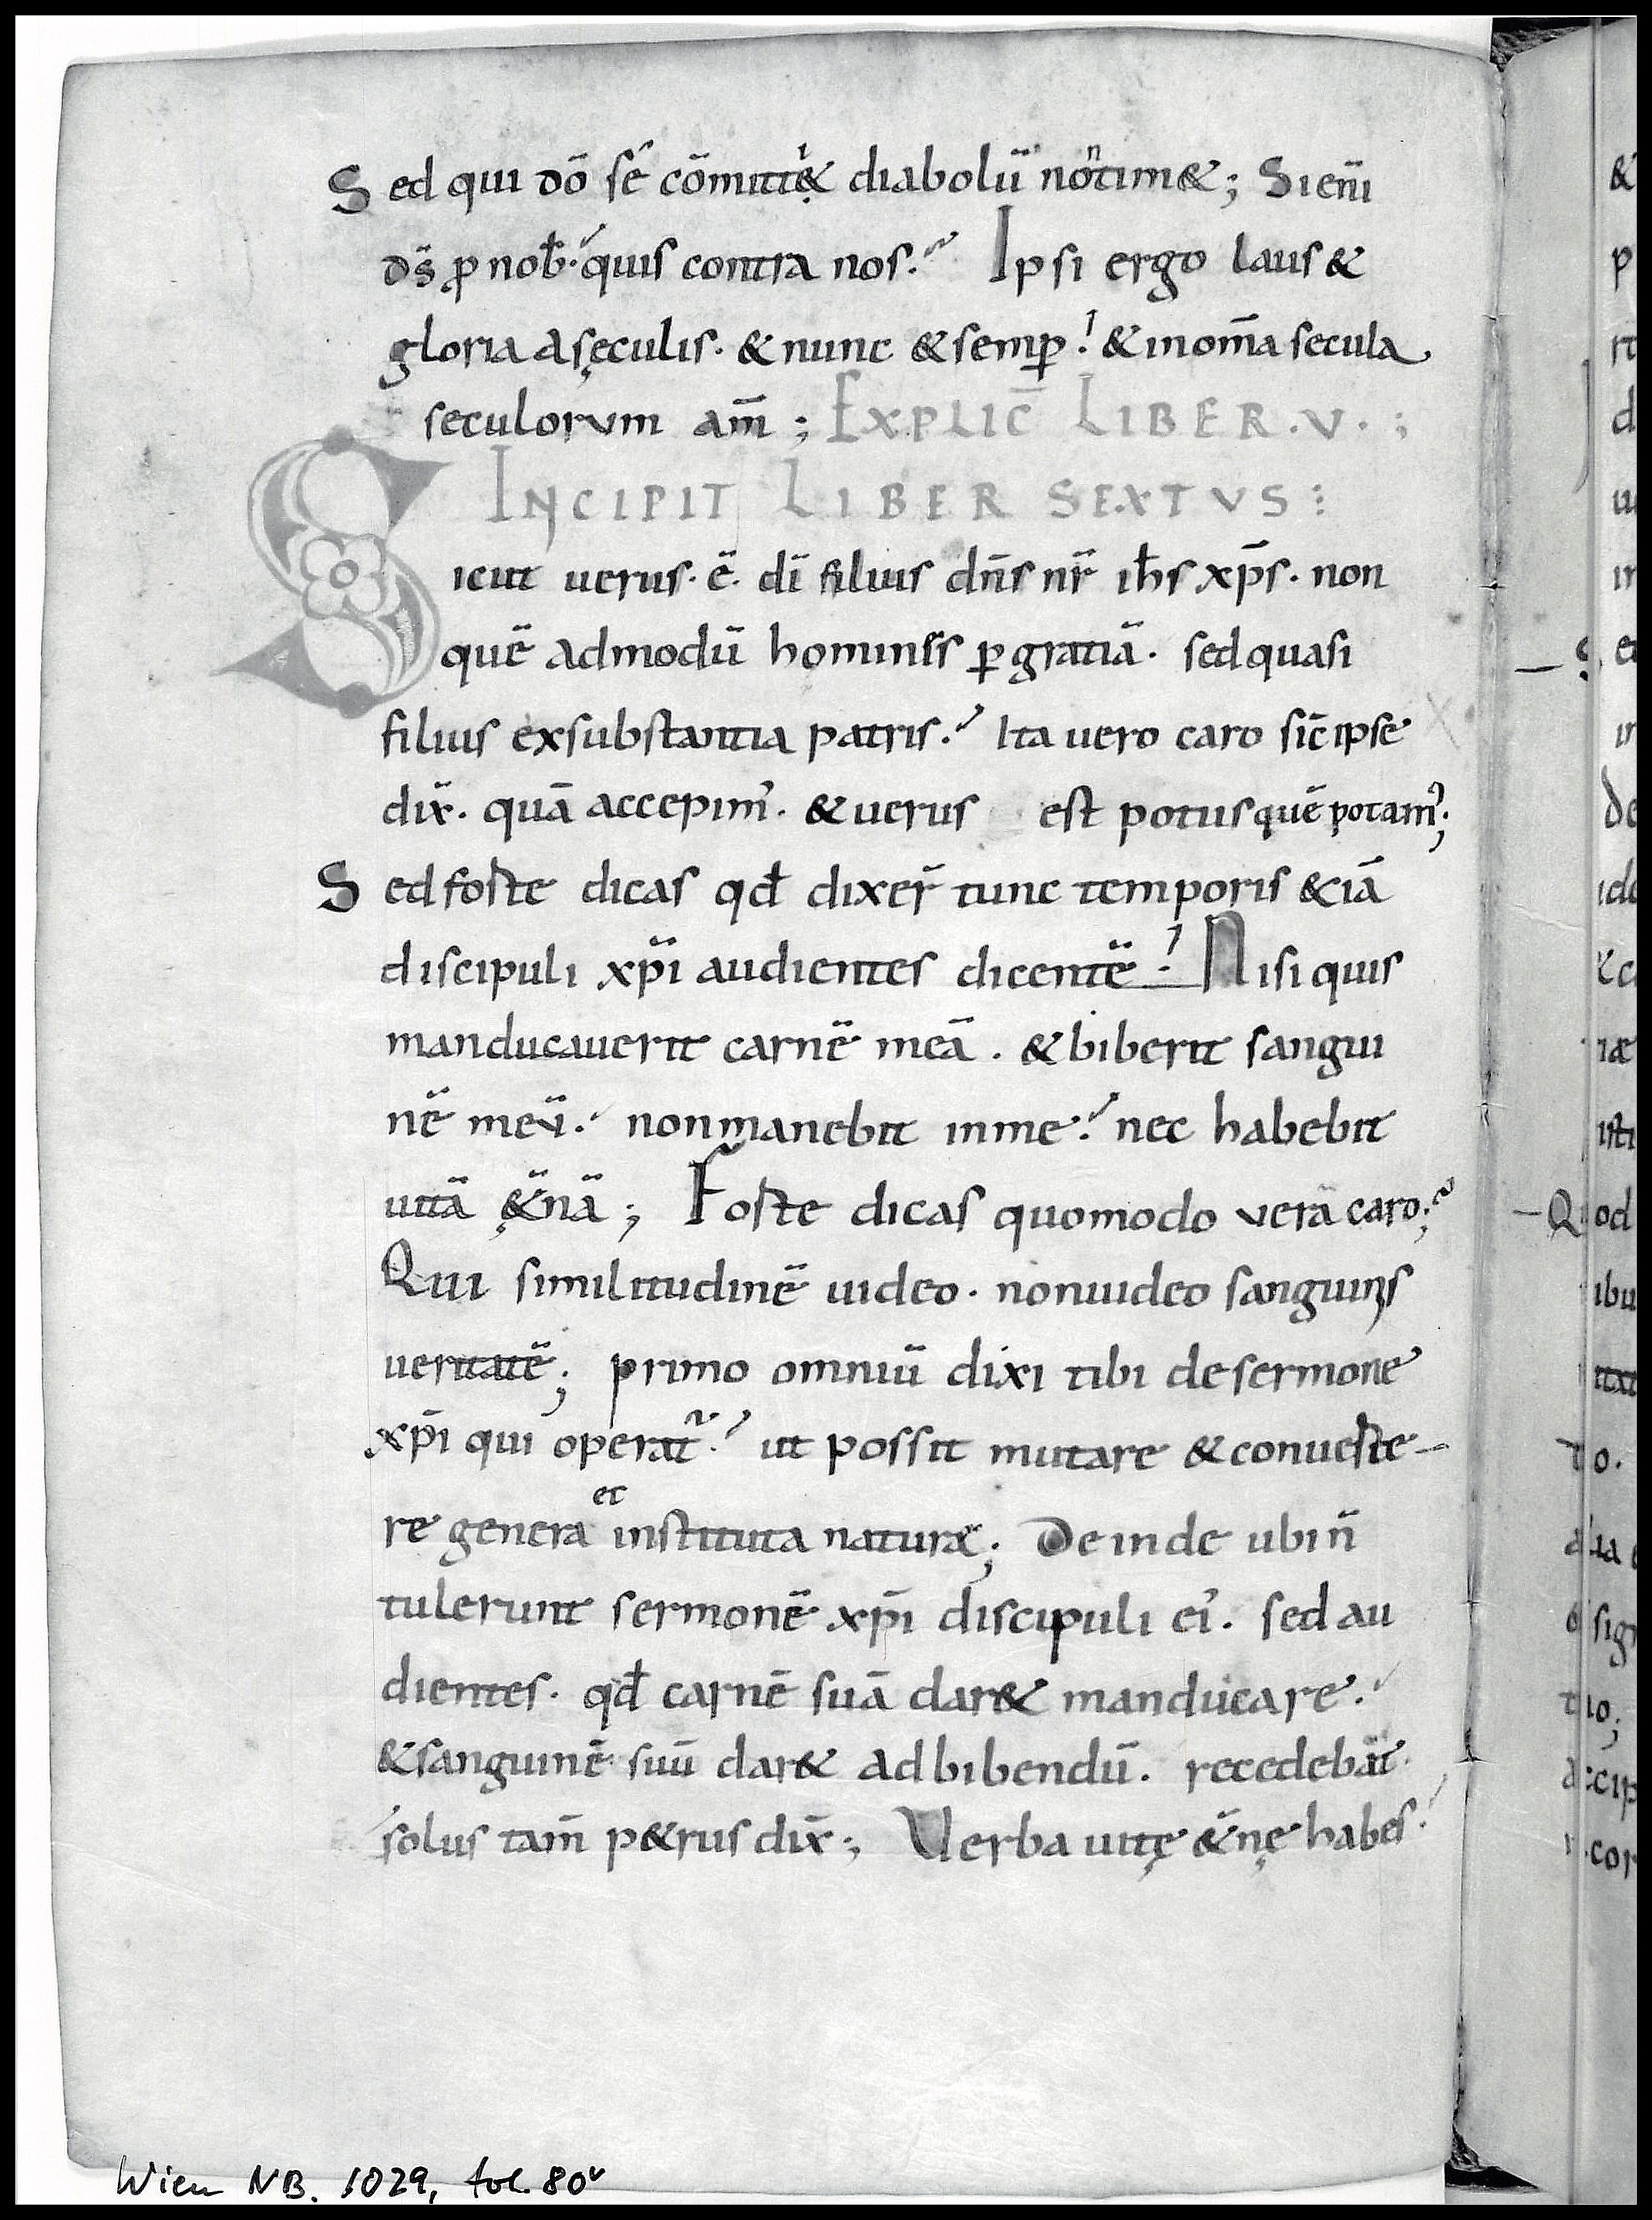 Sed qui dō sē cōmitt& diabolū nōtim&; Si eni̅
ds̄ ꝓ nob̅· quis contra nos.
Ipsi ergo laus &
gloria a sęculis· & nunc & semꝑ· & in om̄a secula
seculorvm am̄; EXPLIC̄ LIBER·V·;
INCIPIT LIBER SEXTVS:
Sicut uerus· ē· dī filius dn̄s nr̄ ih̅s xp̄s· non
quē admodū hominis ꝑ gratiā· sed quasi
filius ex substantia patris. Ita uero caro sic̄ ipse
dix̄· quā accepim᾽· & uerus est potus quē potam᾽;
Sed forte dicas qđ dixer̄ tunc temporis &iā
discipuli xp̄i audientes dicentē· Nisi quis
manducauerit carnē meā· & biberit sangui
nē meū· non manebit in me· nec habebit
uitā &̄nā; Forte dicas quomodo vera caro;
Qui similitudinē uideo· non uideo sanguinis
ueritatē; primo omniū dixi tibi de sermone
xp̄i qui operat᷑· ut possit mutare & conuerte-
re genera et instituta naturæ; Deinde ubi n̄
tulerunt sermonē xp̄i discipuli ei᾽· sed au
dientes· qđ carnē suā dar& manducare·
& sanguinē suū dar& ad bibendū· recedebāt·
solus tam̄ p&rus dix̄; Verba uitę &̄nę habes·
Wien NB. 1029, fol. 80v